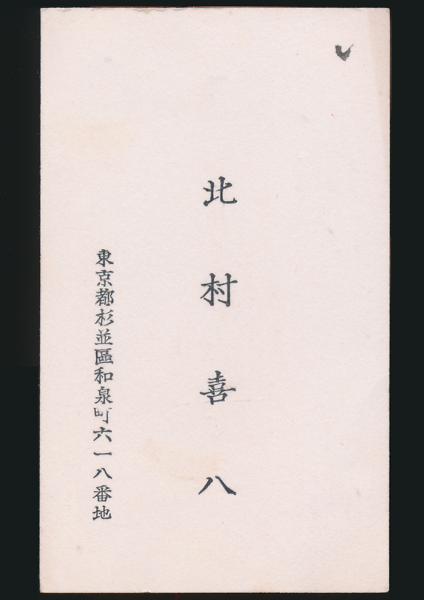 北村喜八
東京都杉並區和泉町六一八番地